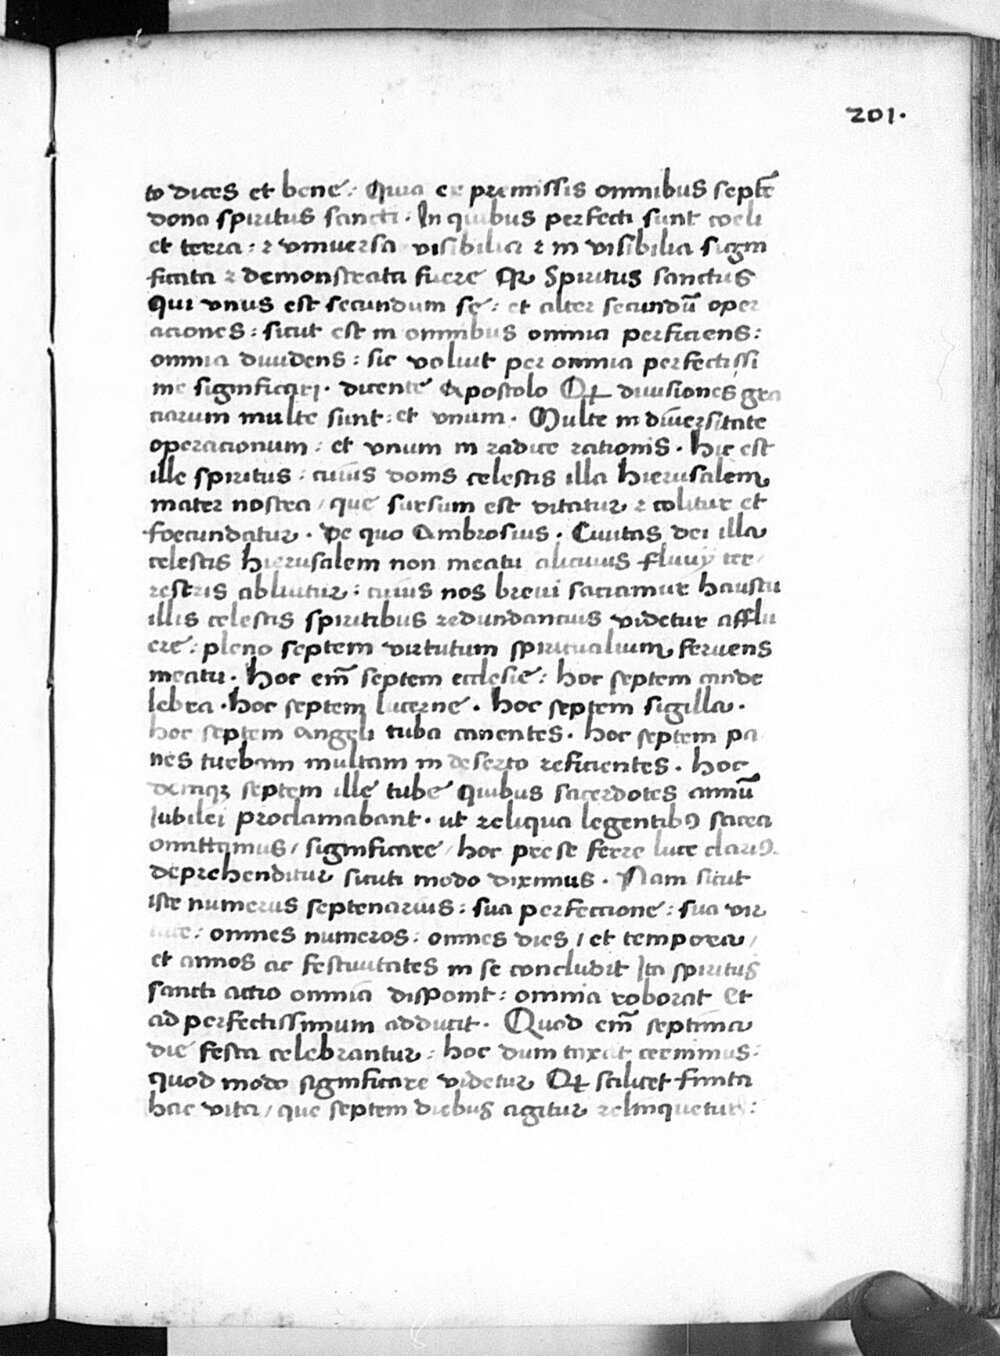 201.
to dices et bene: Quia ex premissis omnibus septē
dona spiritus sancti. In quibus perfecti sunt coeli
et terra: & vniuersa visibilia & in visibilia signi
ficata & demonstrata fuere Qr Spiritus sanctus
Qui vnus est secundum se: et alter secundū oper
aciones: sicut est in omnibus omnia perficiens:
omnia diuidens: sic voluit per omnia perfectissi
me significari. dicente Apostolo Qd diuisiones gra
tiarum multe sunt: et vnum. Multe in diuersitate
operacionum: et vnum in radice rationis. hic est
ille spiritus: cuius doms celestis illa hierusalem
mater nostra, que sursum est ditatur & colitur et
foecundatur. De quo Ambrosius. Ciuitas dei illa
celestis hierusalem non meatu alicuius fluuij ter
restris abluitur: cuius nos breui saciamur haustu
illis celestis spiritibus redundancius videtur afflu
ere: pleno septem virtutum spiritualium feruens
meatu. hoc em̄ septem ecclesie: hoc septem cande
lebra. hoc septem lucerne. hoc septem sigilla.
hoc septem angeli tuba canentes. hoc septem pa
nes turbam multam in deserto reficientes. hoc
deniqz septem ille tube quibus sacerdotes annū
Iubilei proclamabant. ut reliqua legentibꝰ sacra
omittamus, significare, hoc pre se ferre luce clariꝰ
deprehenditur sicuti modo diximus. Nam sicut
iste numerus septenarius: sua perfectione: sua vir
tute: omnes numeros: omnes dies, et tempora,
et annos ac festiuitates in se concludit Ita spiritus
sancti actio omnia disponit: omnia roborat et
ad perfectissimum adducit. Quod em̄ septima
die festa celebrantur: hoc dum taxat cernimus:
quod modo significare videtur Qd scilicet finita
hac vita, que septem diebus agitur relinquetur: